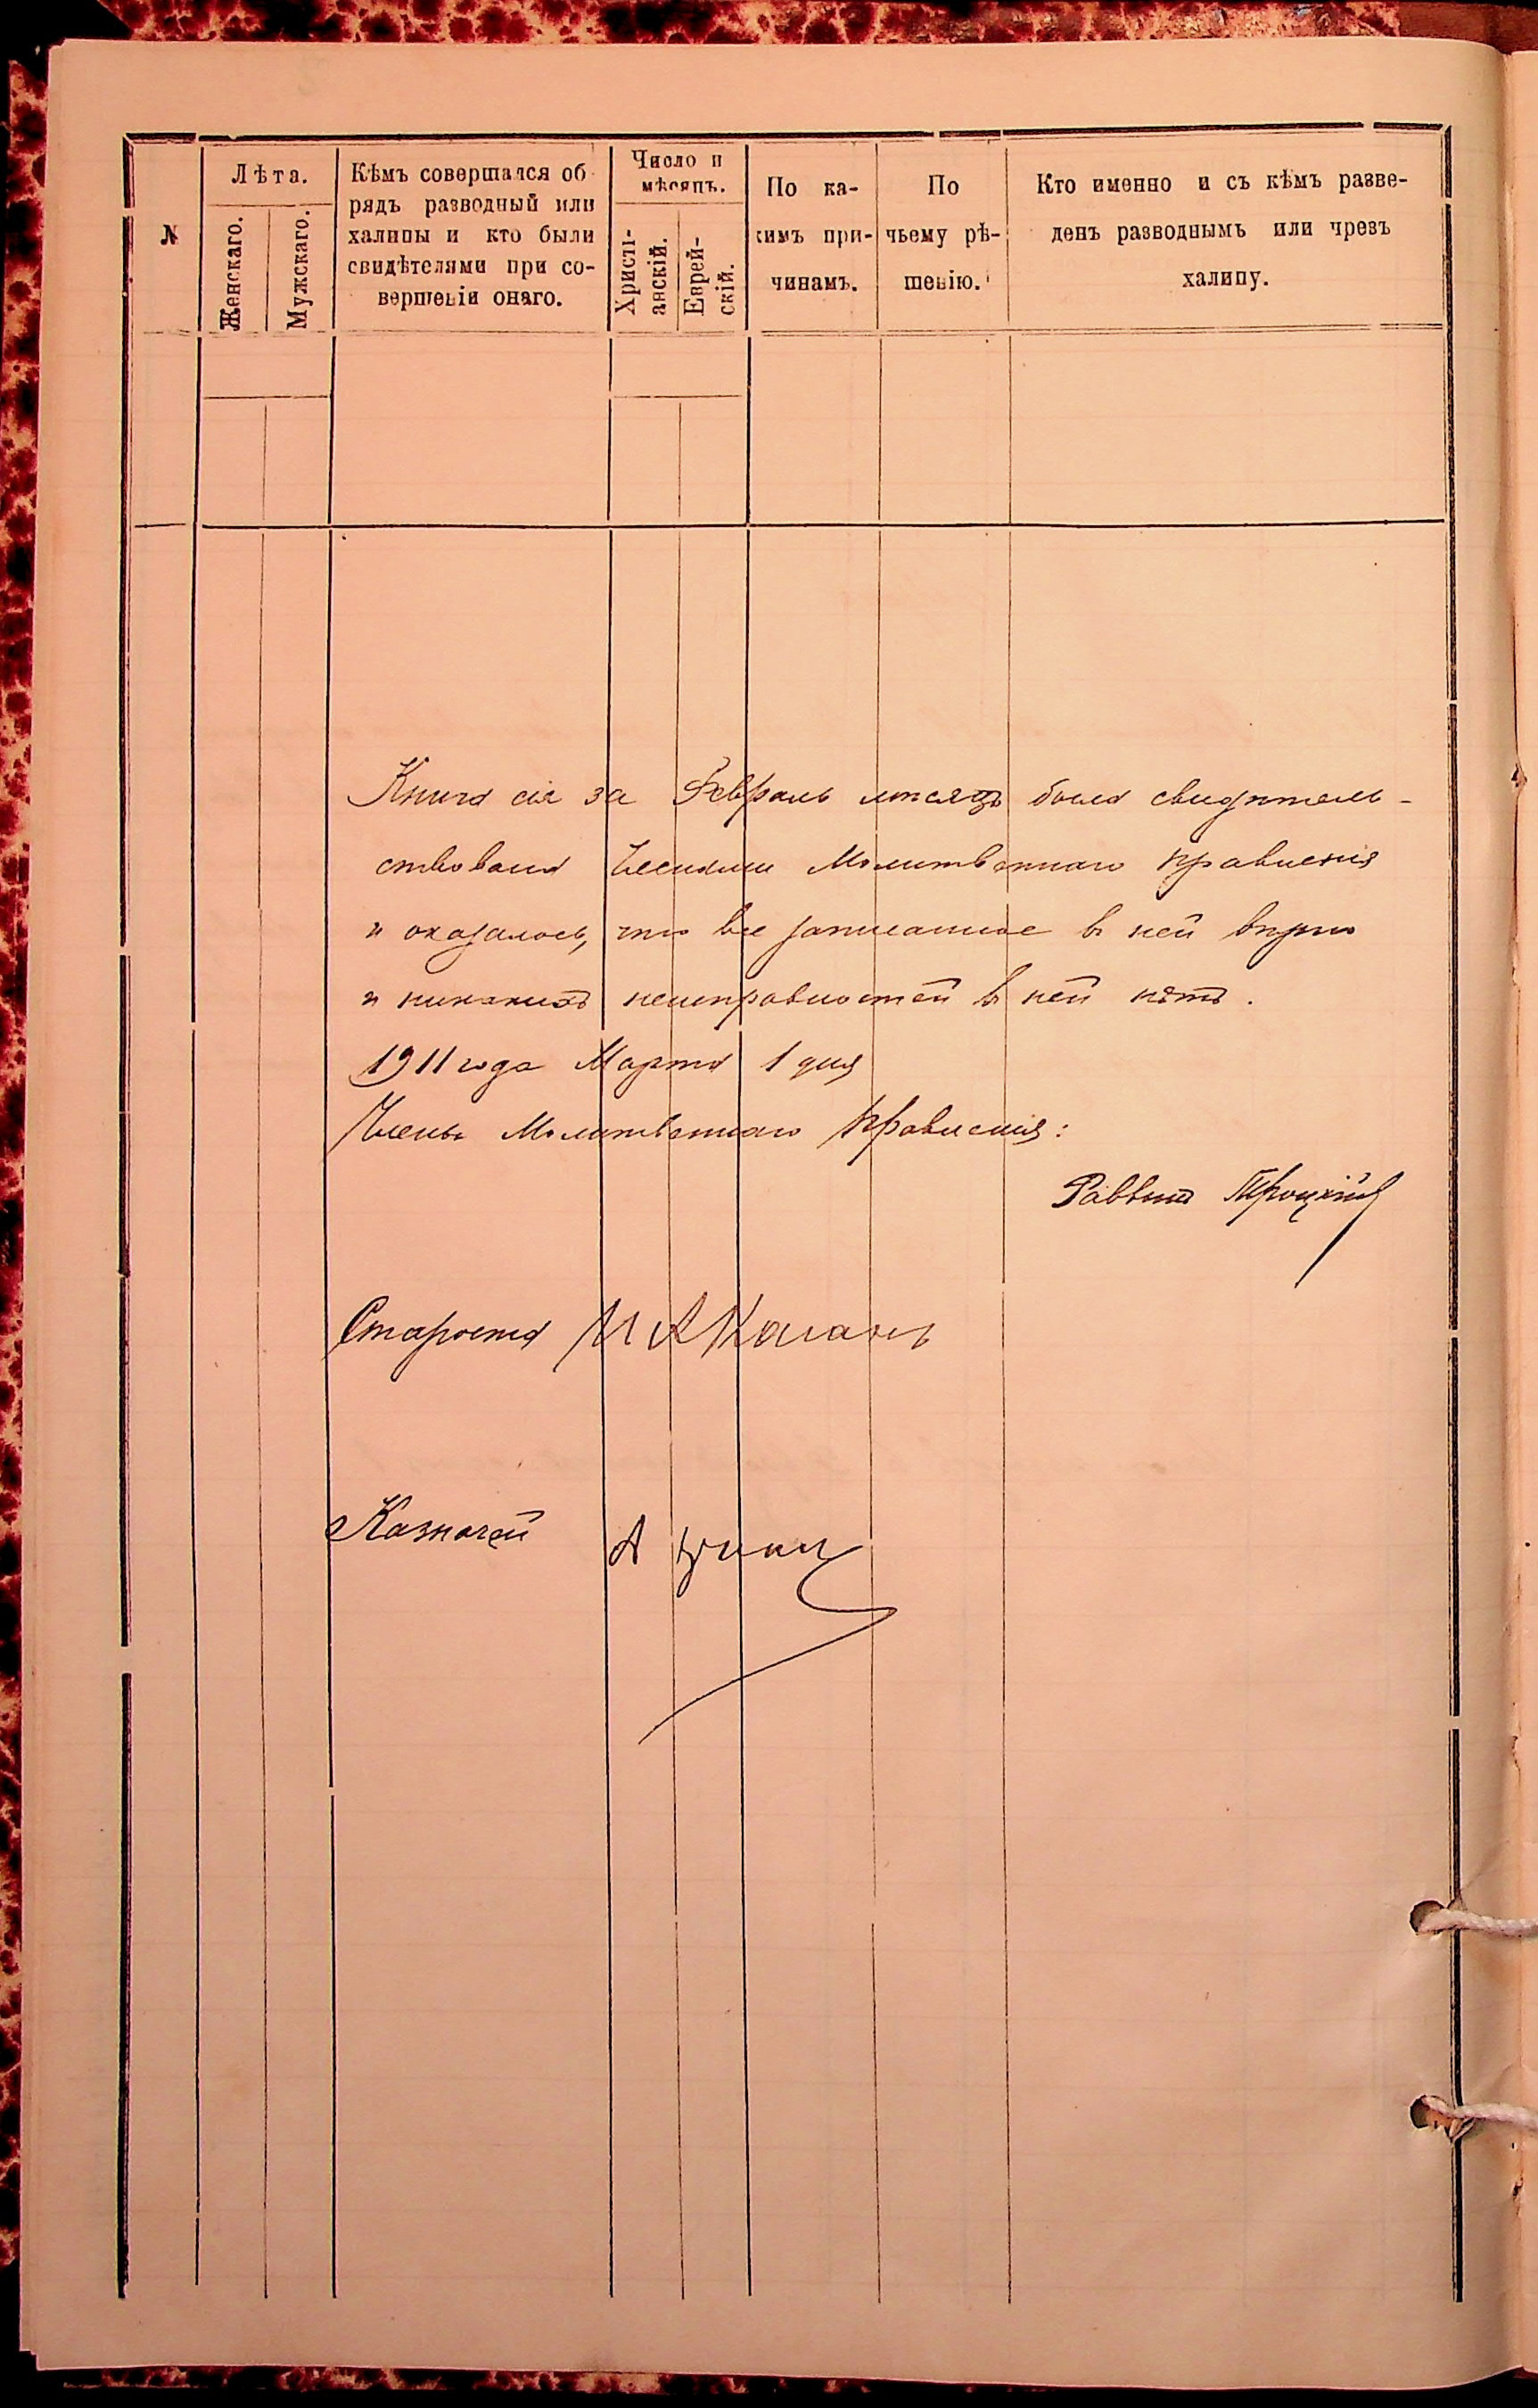 №
Лѣта.
Женскаго.
Мужскаго.
Кѣмъ совершался об-
рядъ разводный или
халицы и кто были
свидѣтелями при со-
вершеніи онаго.
Число и
мѣсяцъ.
Христі-
анскій.
Еврей-
скій.
По ка-
кимъ при-
чинамъ.
По
чьему рѣ-
шенію.
Кто именно и съ кѣмъ разве-
денъ разводнымъ или чрезъ
халицу.
Книга сія за Февраль мѣсяцъ была свидѣтель-
ствована Членами Молитвеннаго Правленія
и оказалось, что все записанное въ ней вѣрно
и никакихъ неисправностей въ ней нѣтъ.
1911 года Марта 1 дня
Члены Молитвеннаго Правленія:
Раввинъ Троцкій
Староста И А Каганъ
Казначей А